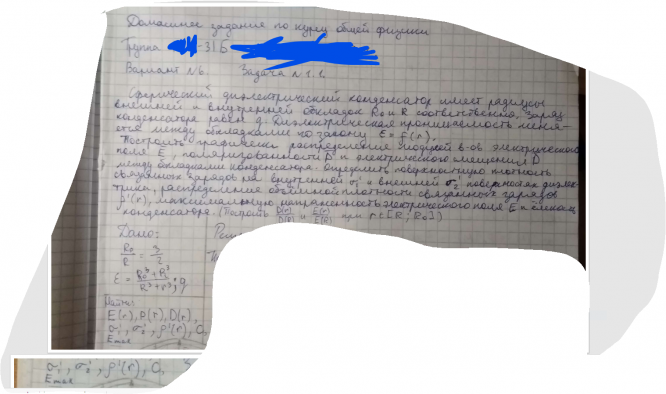 Домашнее задание по курсу общей физики
Группа -31Б
Вариант №6. Задача №1.1.
Сферический диэлектрический конденсатор имеет радиусы
внешней и внутренней обкладок R₀ и R соответственно, заряд
конденсатора равен q. Диэлектрическая проницаемость меня-
ется между обкладками по закону ε = f(r).
Построить графически распределение модулей в-ов электрического
поля E, поляризованности P и электрического смещения D
между обкладками конденсатора. Определить поверхностную плотность
связанных зарядов на внутренней σ₁' и внешней σ₂' поверхностях диэлек-
трика, распределение объёмной плотности связанных зарядов
ρ'(r), максимальную напряжённость электрического поля E и ёмкость
конденсатора. (Построить D(r)/D(R) и E(r)/E(R) при r∈[R; R₀])
Дано:
R₀/R = 3/2
ε = (R₀³+R³)/(R³+r³); q
Найти:
E(r), P(r), D(r),
σ₁', σ₂', ρ'(r), C,
Emax
σ₁', σ₂', ρ'(r), C,
Emax